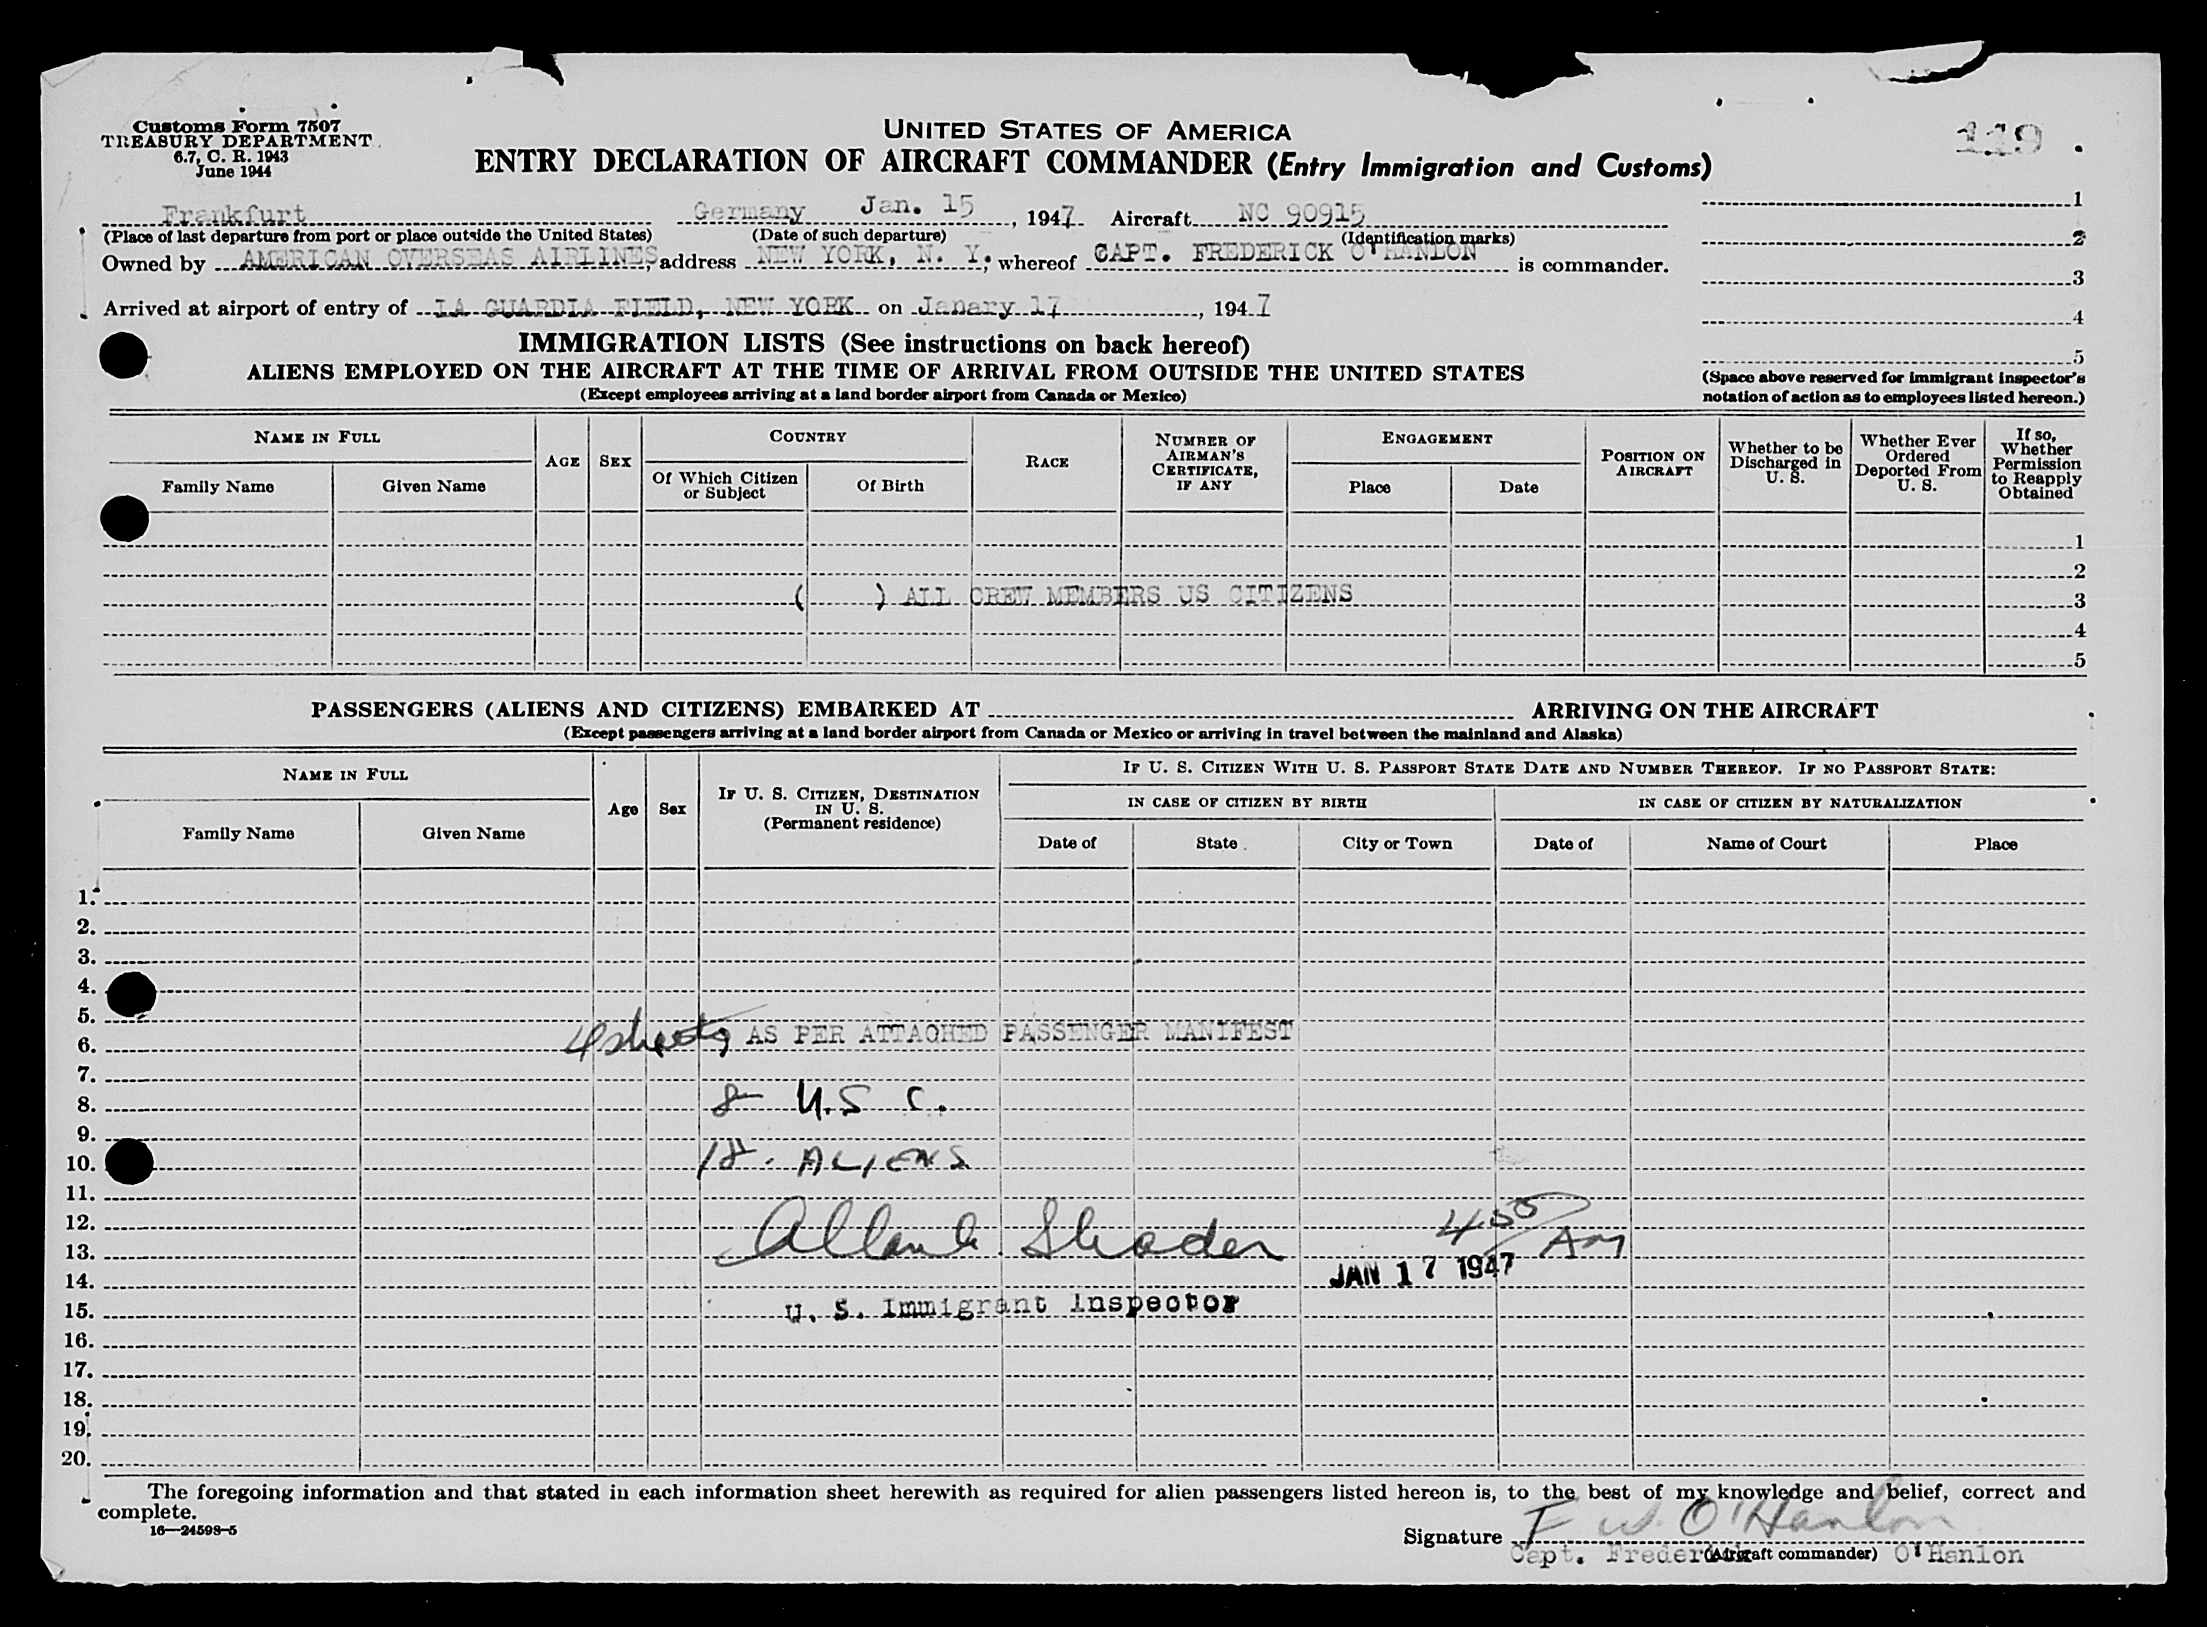 Customs Form 7507
TREASURY DEPARTMENT
6.7, C. R. 1943
June 1944
UNITED STATES OF AMERICA
ENTRY DECLARATION OF AIRCRAFT COMMANDER (Entry Immigration and Customs)
119
Frankfurt Germany Jan. 15, 1947 Aircraft NC 90915
(Place of last departure from port or place outside the United States) (Date of such departure) (Identification marks)
Owned by AMERICAN OVERSEAS AIRLINES, address NEW YORK, N. Y.; whereof CAPT. FREDERICK O'HANLON is commander.
Arrived at airport of entry of LA GUARDIA FIELD, NEW YORK on Janary 17, 1947
1
2
3
4
5
(Space above reserved for immigrant inspector's
notation of action as to employees listed hereon.)
IMMIGRATION LISTS (See instructions on back hereof)
ALIENS EMPLOYED ON THE AIRCRAFT AT THE TIME OF ARRIVAL FROM OUTSIDE THE UNITED STATES
(Except employees arriving at a land border airport from Canada or Mexico)
NAME IN FULL
Family Name
Given Name
AGE
SEX
COUNTRY
Of Which Citizen
or Subject
Of Birth
RACE
NUMBER OF
AIRMAN'S
CERTIFICATE,
IF ANY
ENGAGEMENT
Place
Date
POSITION ON
AIRCRAFT
Whether to be
Discharged in
U. S.
Whether Ever
Ordered
Deported From
U. S.
If so,
Whether
Permission
to Reapply
Obtained
1
2
( ) ALL CREW MEMBERS US CITIZENS 3
4
5
PASSENGERS (ALIENS AND CITIZENS) EMBARKED AT ARRIVING ON THE AIRCRAFT
(Except passengers arriving at a land border airport from Canada or Mexico or arriving in travel between the mainland and Alaska)
NAME IN FULL
Family Name
Given Name
Age
Sex
IF U. S. CITIZEN, DESTINATION
IN U. S.
(Permanent residence)
IF U. S. CITIZEN WITH U. S. PASSPORT STATE DATE AND NUMBER THEREOF. IF NO PASSPORT STATE:
IN CASE OF CITIZEN BY BIRTH
IN CASE OF CITIZEN BY NATURALIZATION
Date of
State
City or Town
Date of
Name of Court
Place
1.
2.
3.
4.
5.
4 sheets AS PER ATTACHED PASSENGER MANIFEST
6.
7.
8. 8 U.S C.
9.
10. 18. ALIENS
11.
12. 4 55 AM
13. JAN 17 1947
14.
15. U. S. Immigrant Inspector
16.
17.
18.
19.
20.
The foregoing information and that stated in each information sheet herewith as required for alien passengers listed hereon is, to the best of my knowledge and belief, correct and
complete.
16—24598-5
Signature F W. O'Hanlon
Capt. Frederick O'Hanlon
(Aircraft commander)